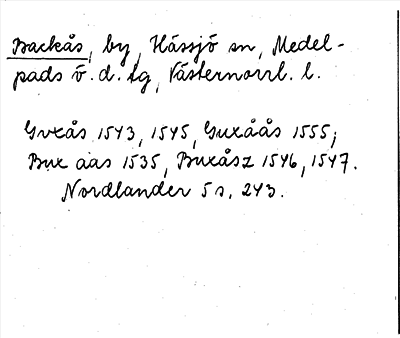 Backås, by, Hässjö sn, Medel-
pads ö. d. tg, Västernorrl. l.
Gvxås 1543, 1545, Guxåås 1555;
Bux aas 1535, Buxåsz 1546, 1547.
Nordlander 5 s. 243.